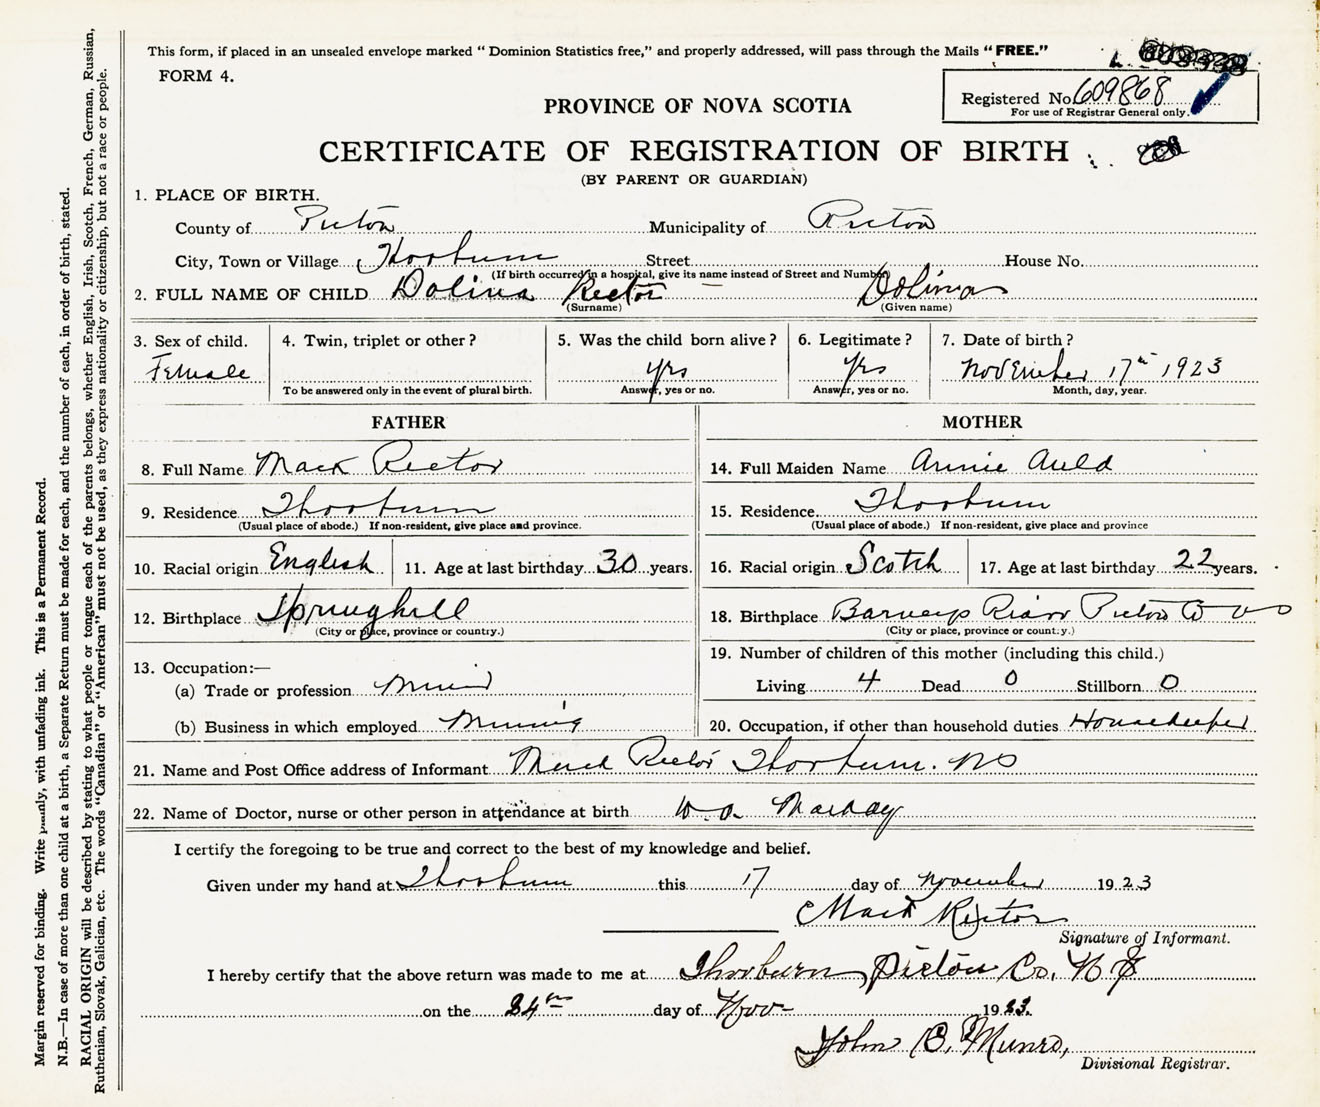 This form, if placed in an unsealed envelope marked " Dominion Statistics free," and properly addressed, will pass through the Mails " FREE."
FORM 4.
Registered No. 609868
For use of Registrar General only.
PROVINCE OF NOVA SCOTIA
CERTIFICATE OF REGISTRATION OF BIRTH
(BY PARENT OR GUARDIAN)
1. PLACE OF BIRTH.
County of Pictou Municipality of Pictou
City, Town or Village Thorburn Street House No.
(If birth occurred in a hospital, give its name instead of Street and Number)
2. FULL NAME OF CHILD Dolina Rector Dolina
(Surname) (Given name)
3. Sex of child. 4. Twin, triplet or other? 5. Was the child born alive? 6. Legitimate? 7. Date of birth?
Female yes yes November 17th 1923
To be answered only in the event of plural birth. Answer, yes or no. Answer, yes or no. Month, day, year.
FATHER MOTHER
8. Full Name Mack Rector 14. Full Maiden Name Annie Auld
9. Residence Thorburn 15. Residence. Thorburn
(Usual place of abode.) If non-resident, give place and province. (Usual place of abode.) If non-resident, give place and province
10. Racial origin English 11. Age at last birthday 30 years. 16. Racial origin Scotch 17. Age at last birthday 22 years.
12. Birthplace Springhill 18. Birthplace Barneys River Pictou Co
(City or place, province or country.) (City or place, province or country.)
13. Occupation:— 19. Number of children of this mother (including this child.)
(a) Trade or profession Living 4 Dead 0 Stillborn 0
(b) Business in which employed Mining 20. Occupation, if other than household duties Housekeeper
21. Name and Post Office address of Informant Mack Rector Thorburn. NS
22. Name of Doctor, nurse or other person in attendance at birth
I certify the foregoing to be true and correct to the best of my knowledge and belief.
Given under my hand at Thorburn this 17 day of November 1923
Mack Rector
Signature of Informant.
I hereby certify that the above return was made to me at Thorburn, Pictou Co. N S
on the 24th day of Nov- 1923.
John B. Munro,
Divisional Registrar.
Margin reserved for binding. Write plainly, with unfading ink. This is a Permanent Record.
N.B.—In case of more than one child at a birth, a Separate Return must be made for each, and the number of each, in order of birth, stated.
RACIAL ORIGIN will be described by stating to what people or tongue each of the parents belongs, whether English, Irish, Scotch, French, German, Russian,
Ruthenian, Slovak, Galician, etc. The words "Canadian" or "American" must not be used, as they express nationality or citizenship, but not a race or people.